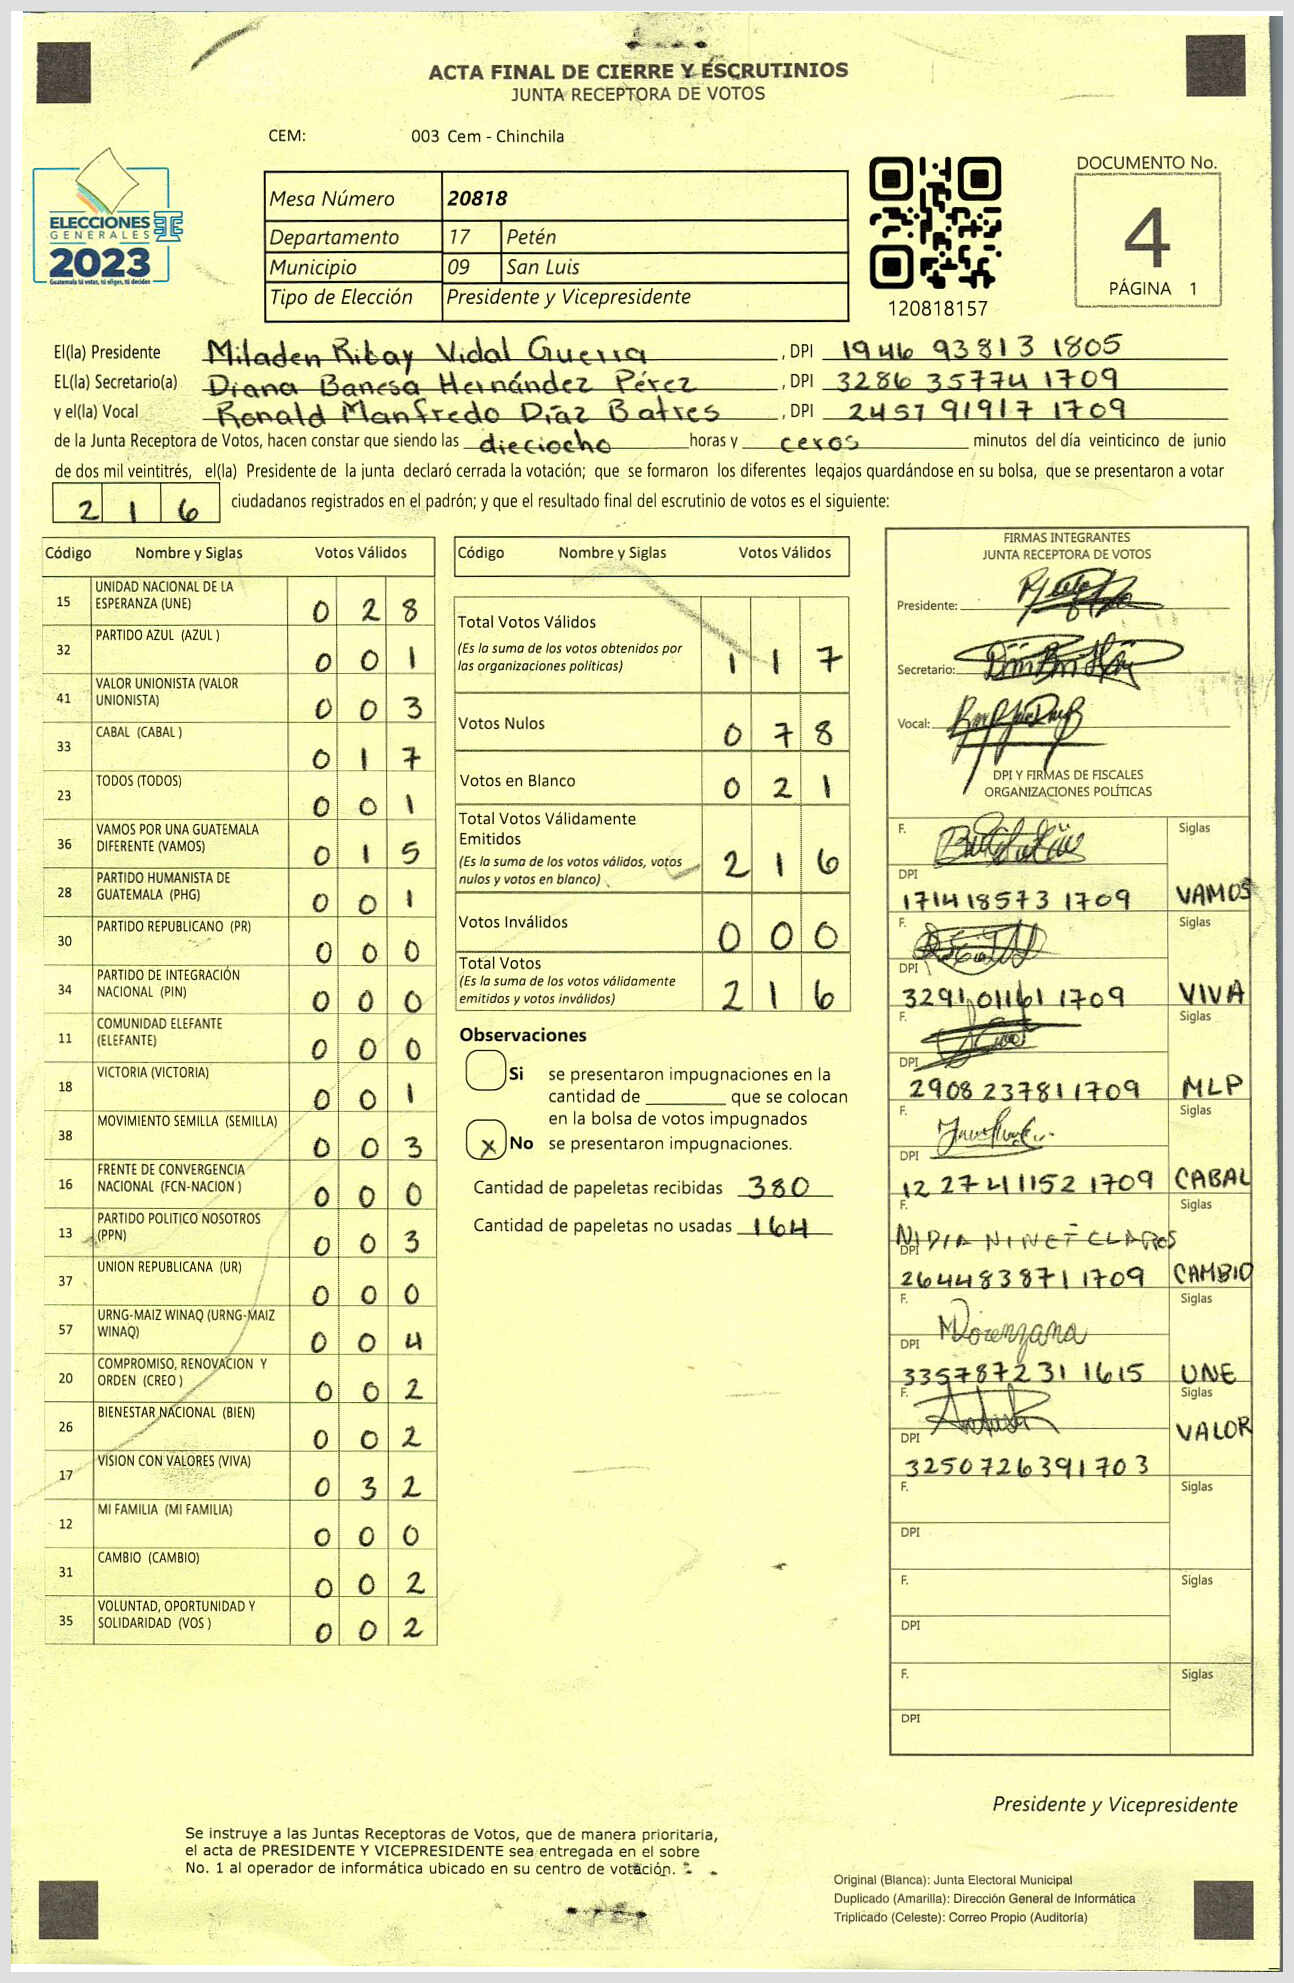 ACTA FINAL DE CIERRE Y ESCRUTINIOS
JUNTA RECEPTORA DE VOTOS
CEM: 003 Cem - Chinchila
ELECCIONES
GENERALES
2023
Guatemala tú votas, tú eliges, tú decides
Mesa Número 20818
Departamento 17 Petén
Municipio 09 San Luis
Tipo de Elección Presidente y Vicepresidente
120818157
DOCUMENTO No.
4
PÁGINA 1
El(la) Presidente Miladen Ribay Vidal Guerra , DPI 1946 93813 1805
EL(la) Secretario(a) Diana Banesa Hernández Pérez , DPI 3286 35774 1709
y el(la) Vocal Ronald Manfredo Díaz Batres , DPI 2457 91917 1709
de la Junta Receptora de Votos, hacen constar que siendo las dieciocho horas y ceros minutos del día veinticinco de junio
de dos mil veintitrés, el(la) Presidente de la junta declaró cerrada la votación; que se formaron los diferentes legajos guardándose en su bolsa, que se presentaron a votar
2 1 6 ciudadanos registrados en el padrón; y que el resultado final del escrutinio de votos es el siguiente:
Código Nombre y Siglas Votos Válidos
15 UNIDAD NACIONAL DE LA ESPERANZA (UNE) 0 2 8
32 PARTIDO AZUL (AZUL ) 0 0 1
41 VALOR UNIONISTA (VALOR UNIONISTA) 0 0 3
33 CABAL (CABAL ) 0 1 7
23 TODOS (TODOS) 0 0 1
36 VAMOS POR UNA GUATEMALA DIFERENTE (VAMOS) 0 1 5
28 PARTIDO HUMANISTA DE GUATEMALA (PHG) 0 0 1
30 PARTIDO REPUBLICANO (PR) 0 0 0
34 PARTIDO DE INTEGRACIÓN NACIONAL (PIN) 0 0 0
11 COMUNIDAD ELEFANTE (ELEFANTE) 0 0 0
18 VICTORIA (VICTORIA) 0 0 1
38 MOVIMIENTO SEMILLA (SEMILLA) 0 0 3
16 FRENTE DE CONVERGENCIA NACIONAL (FCN-NACION ) 0 0 0
13 PARTIDO POLITICO NOSOTROS (PPN) 0 0 3
37 UNION REPUBLICANA (UR) 0 0 0
57 URNG-MAIZ WINAQ (URNG-MAIZ WINAQ) 0 0 4
20 COMPROMISO, RENOVACION Y ORDEN (CREO ) 0 0 2
26 BIENESTAR NACIONAL (BIEN) 0 0 2
17 VISION CON VALORES (VIVA) 0 3 2
12 MI FAMILIA (MI FAMILIA) 0 0 0
31 CAMBIO (CAMBIO) 0 0 2
35 VOLUNTAD, OPORTUNIDAD Y SOLIDARIDAD (VOS ) 0 0 2
Código Nombre y Siglas Votos Válidos
Total Votos Válidos
(Es la suma de los votos obtenidos por
las organizaciones políticas) 1 1 7
Votos Nulos 0 7 8
Votos en Blanco 0 2 1
Total Votos Válidamente
Emitidos
(Es la suma de los votos válidos, votos
nulos y votos en blanco) 2 1 6
Votos Inválidos 0 0 0
Total Votos
(Es la suma de los votos válidamente
emitidos y votos inválidos) 2 1 6
Observaciones
Si se presentaron impugnaciones en la
cantidad de ________ que se colocan
en la bolsa de votos impugnados
x No se presentaron impugnaciones.
Cantidad de papeletas recibidas 380
Cantidad de papeletas no usadas 164
FIRMAS INTEGRANTES
JUNTA RECEPTORA DE VOTOS
Presidente:
Secretario:
Vocal:
DPI Y FIRMAS DE FISCALES
ORGANIZACIONES POLÍTICAS
F. Siglas
DPI
171418573 1709 VAMOS
F. Siglas
DPI
3291 01161 1709 VIVA
F. Siglas
DPI
2908 23781 1709 MLP
F. Siglas
DPI
12 27 41152 1709 CABAL
F. Siglas
NIDIA NINET CLAROS
DPI
264483871 1709 CAMBIO
F. Siglas
DPI
335787231 1615 UNE
F. Siglas
DPI VALOR
3250726391703
F. Siglas
DPI
F. Siglas
DPI
F. Siglas
DPI
Presidente y Vicepresidente
Se instruye a las Juntas Receptoras de Votos, que de manera prioritaria,
el acta de PRESIDENTE Y VICEPRESIDENTE sea entregada en el sobre
No. 1 al operador de informática ubicado en su centro de votación.
Original (Blanca): Junta Electoral Municipal
Duplicado (Amarilla): Dirección General de Informática
Triplicado (Celeste): Correo Propio (Auditoría)